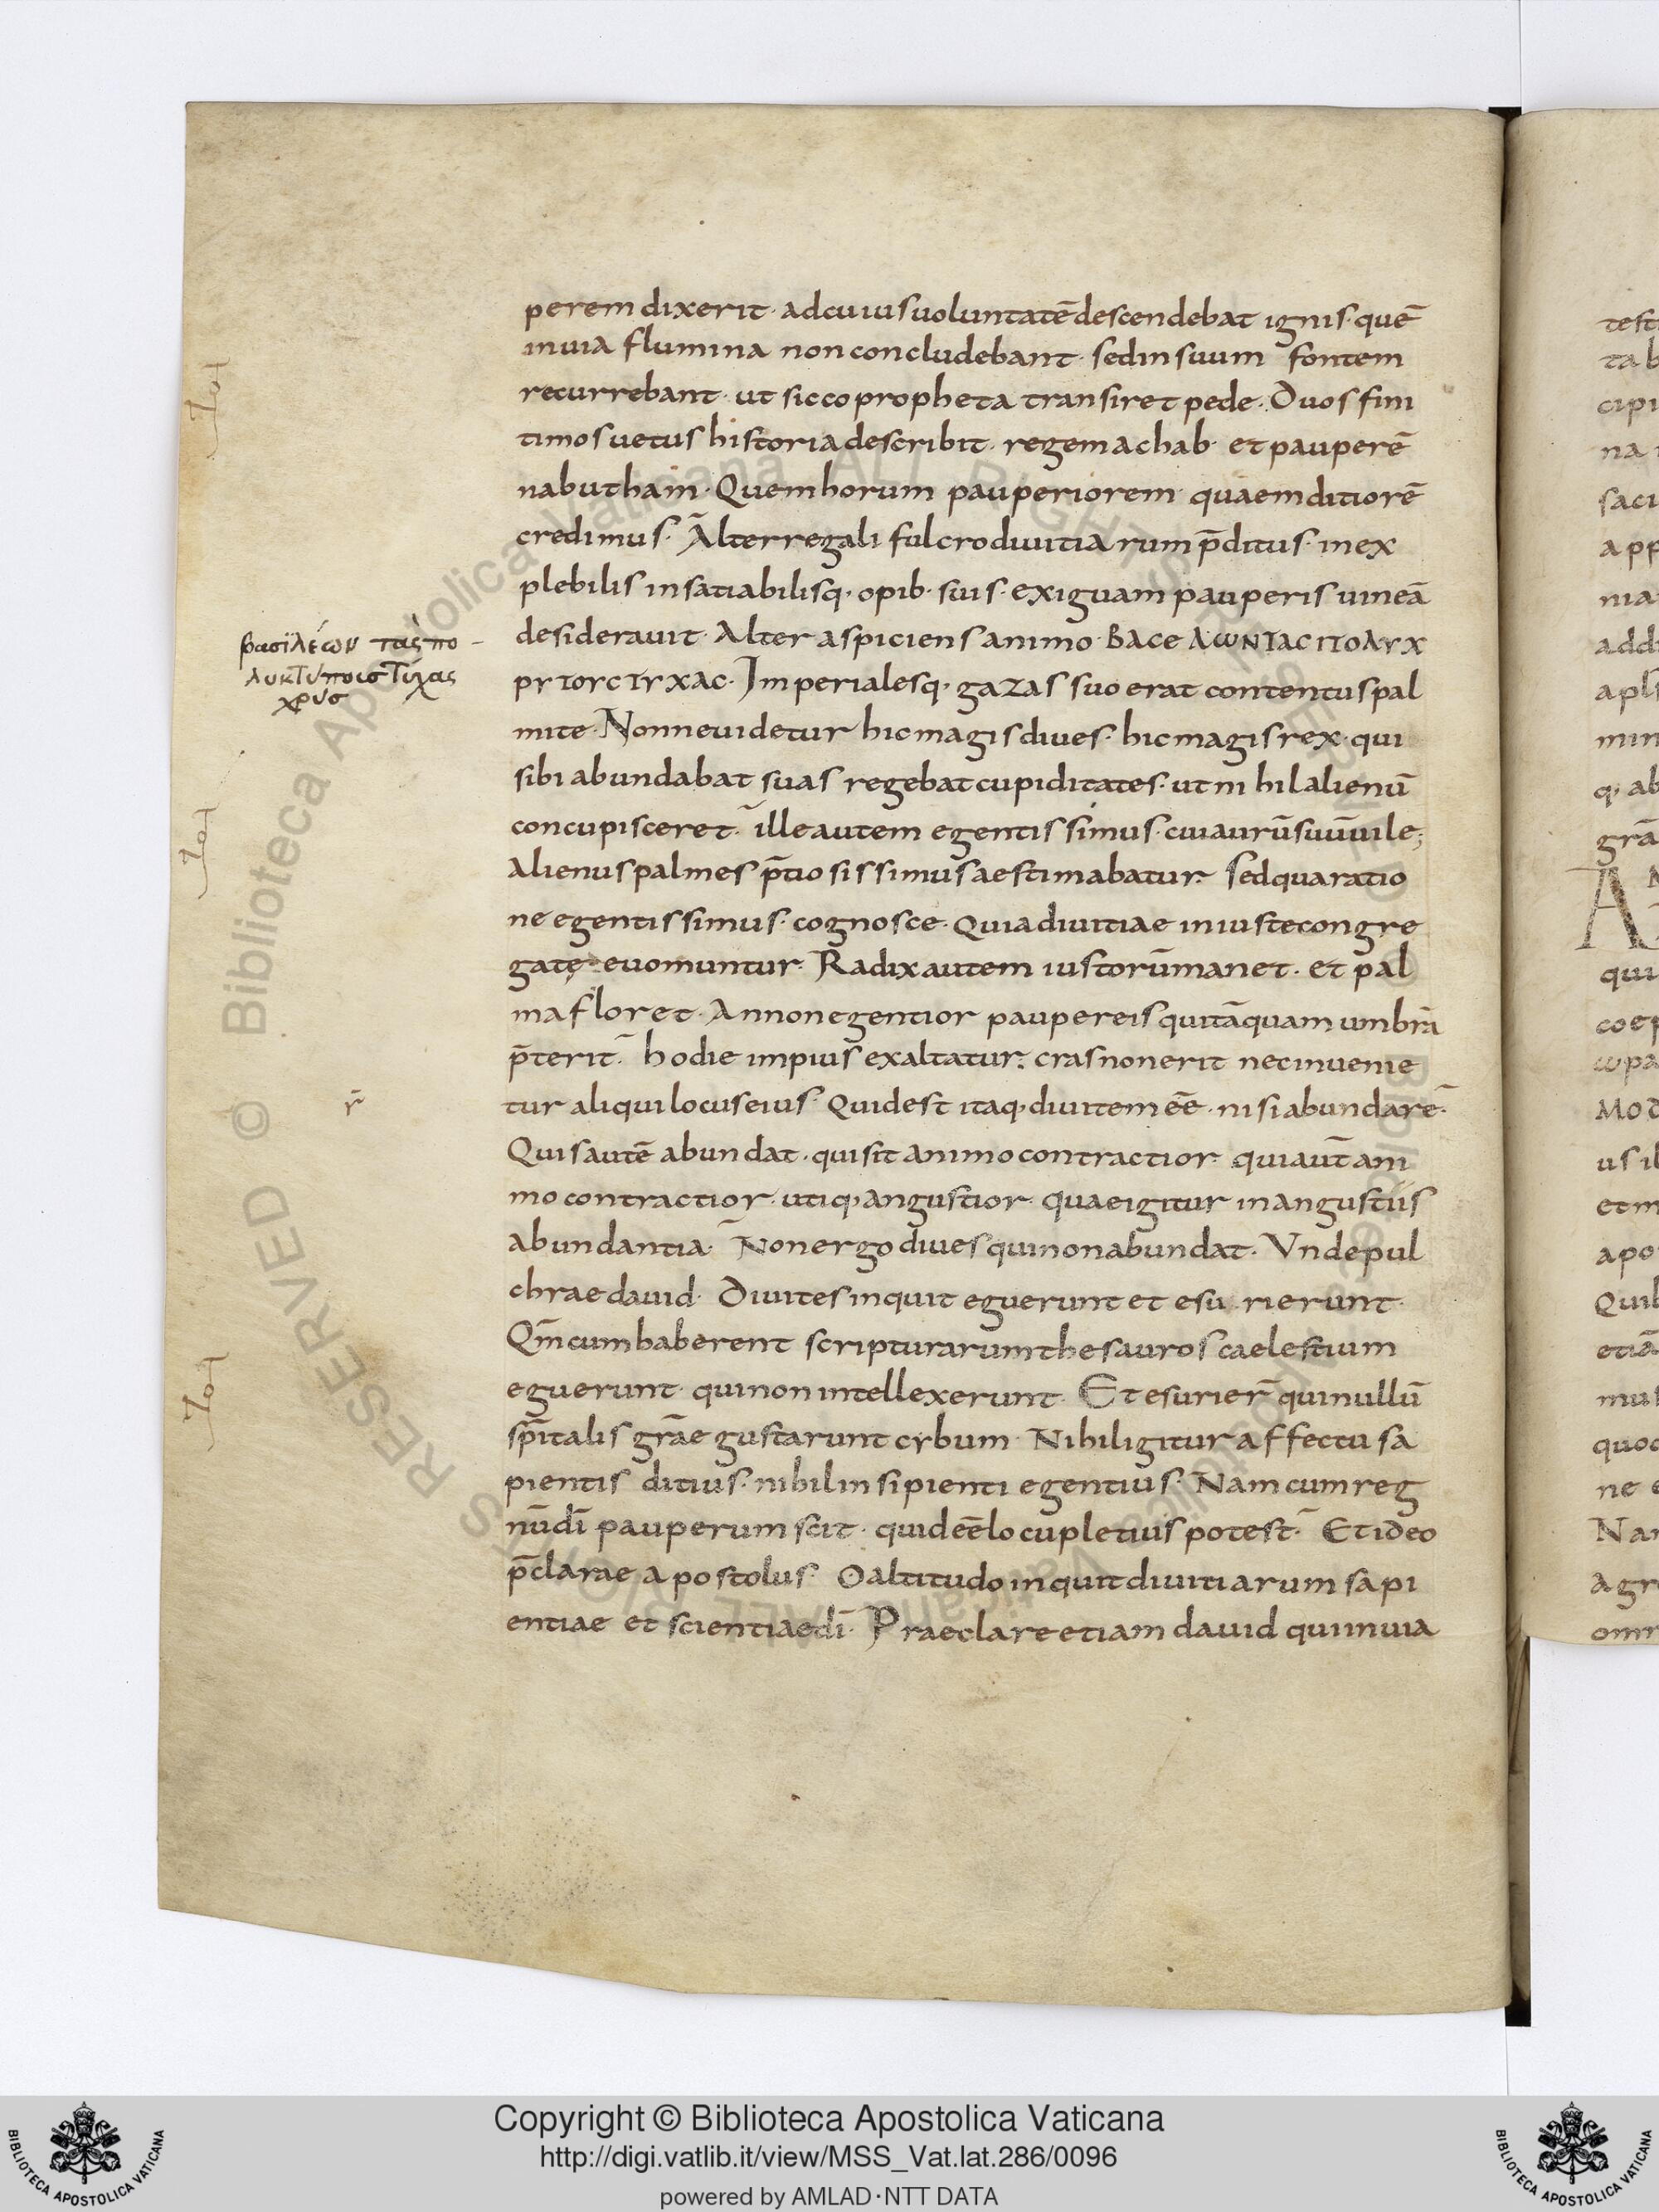 perem dixerit· ad cuius uoluntatē descendebat ignis· quē
inuia flumina non concludebant· sed in suum fontem
recurrebant· ut sicco propheta transiret pede· Duos fini
timos uetus historia describit· regem achab· et pauperē
nabutham· Quem horum pauperiorem quaem ditiorē
credimus· Alter regali fulcro diuitiarum p̄ditus· inex
plebilis insatiabilisq· opib· suis· exiguam pauperis uineā
desiderauit· Alter aspiciens animo· ΒΑCΕ ΛωΝΤΑC ΠΟΛΥΧ
ΡΥΤΟΥC ΤΥΧΑC· Imperialesq· gazas suo erat contentus pal
mite· Nonne uidetur hic magis diues· hic magis rex· qui
sibi abundabat suas regebat cupiditates· ut nihil alienū
concupisceret· ille autem egentissimus· cui aurū suūuile;
Alienus palmes p̄tiosissimus aestimabatur· Sed qua ratio
ne egentissimus· cognosce· Quia diuitiae iniuste congre
gatę euomuntur· Radix autem iustorūmanet· et pal
ma floret· An non egentior pauper eis qui tāquam umbrā
p̄terit· hodie impius exaltatur· cras non erit nec inuenie
tur aliqui locus eius· Quid est itaq· diuitem ēē· nisi abundare·
Quis autē abundat· qui sit animo contractior· qui aut̄ ani
mo contractior· utiq· angustior· quae igitur in angustiis
abundantia· Non ergo diues qui non abundat· Vnde pul
chrae dauid· Diuites inquit eguerunt et esurierunt·
Qm̄ cum haberent scripturarum thesauros caelestium
eguerunt· qui non intellexerunt· Et esurier̄ qui nullū
sp̄italis grāe gustarunt cybum· Nihil igitur affectu sa
pientis ditius· nihil insipienti egentius· Nam cum reg
nūdī pauperum scit· quid ēē locupletius potest· Et ideo
p̄clarae apostolus· O altitudo inquit diuitiarum sapi
entiae et scientiae dī· Praeclare etiam dauid qui in uia
βασιλέων τας πο-
λυκτυποισ τύχας
χρυσ
r̄
test
tab
cipi
na
saci
app
nia
add
apls
min
q· ab
grā
qui
coep
ωpa
mod
us il
et m
apo
Quib
etiā
mus
quoc
ne e
Nar
agr
omn
© Biblioteca Apostolica Vaticana ALL RIGHTS RESERVED
Copyright © Biblioteca Apostolica Vaticana
http://digi.vatlib.it/view/MSS_Vat.lat.286/0096
powered by AMLAD·NTT DATA
BIBLIOTECA APOSTOLICA VATICANA
BIBLIOTECA APOSTOLICA VATICANA